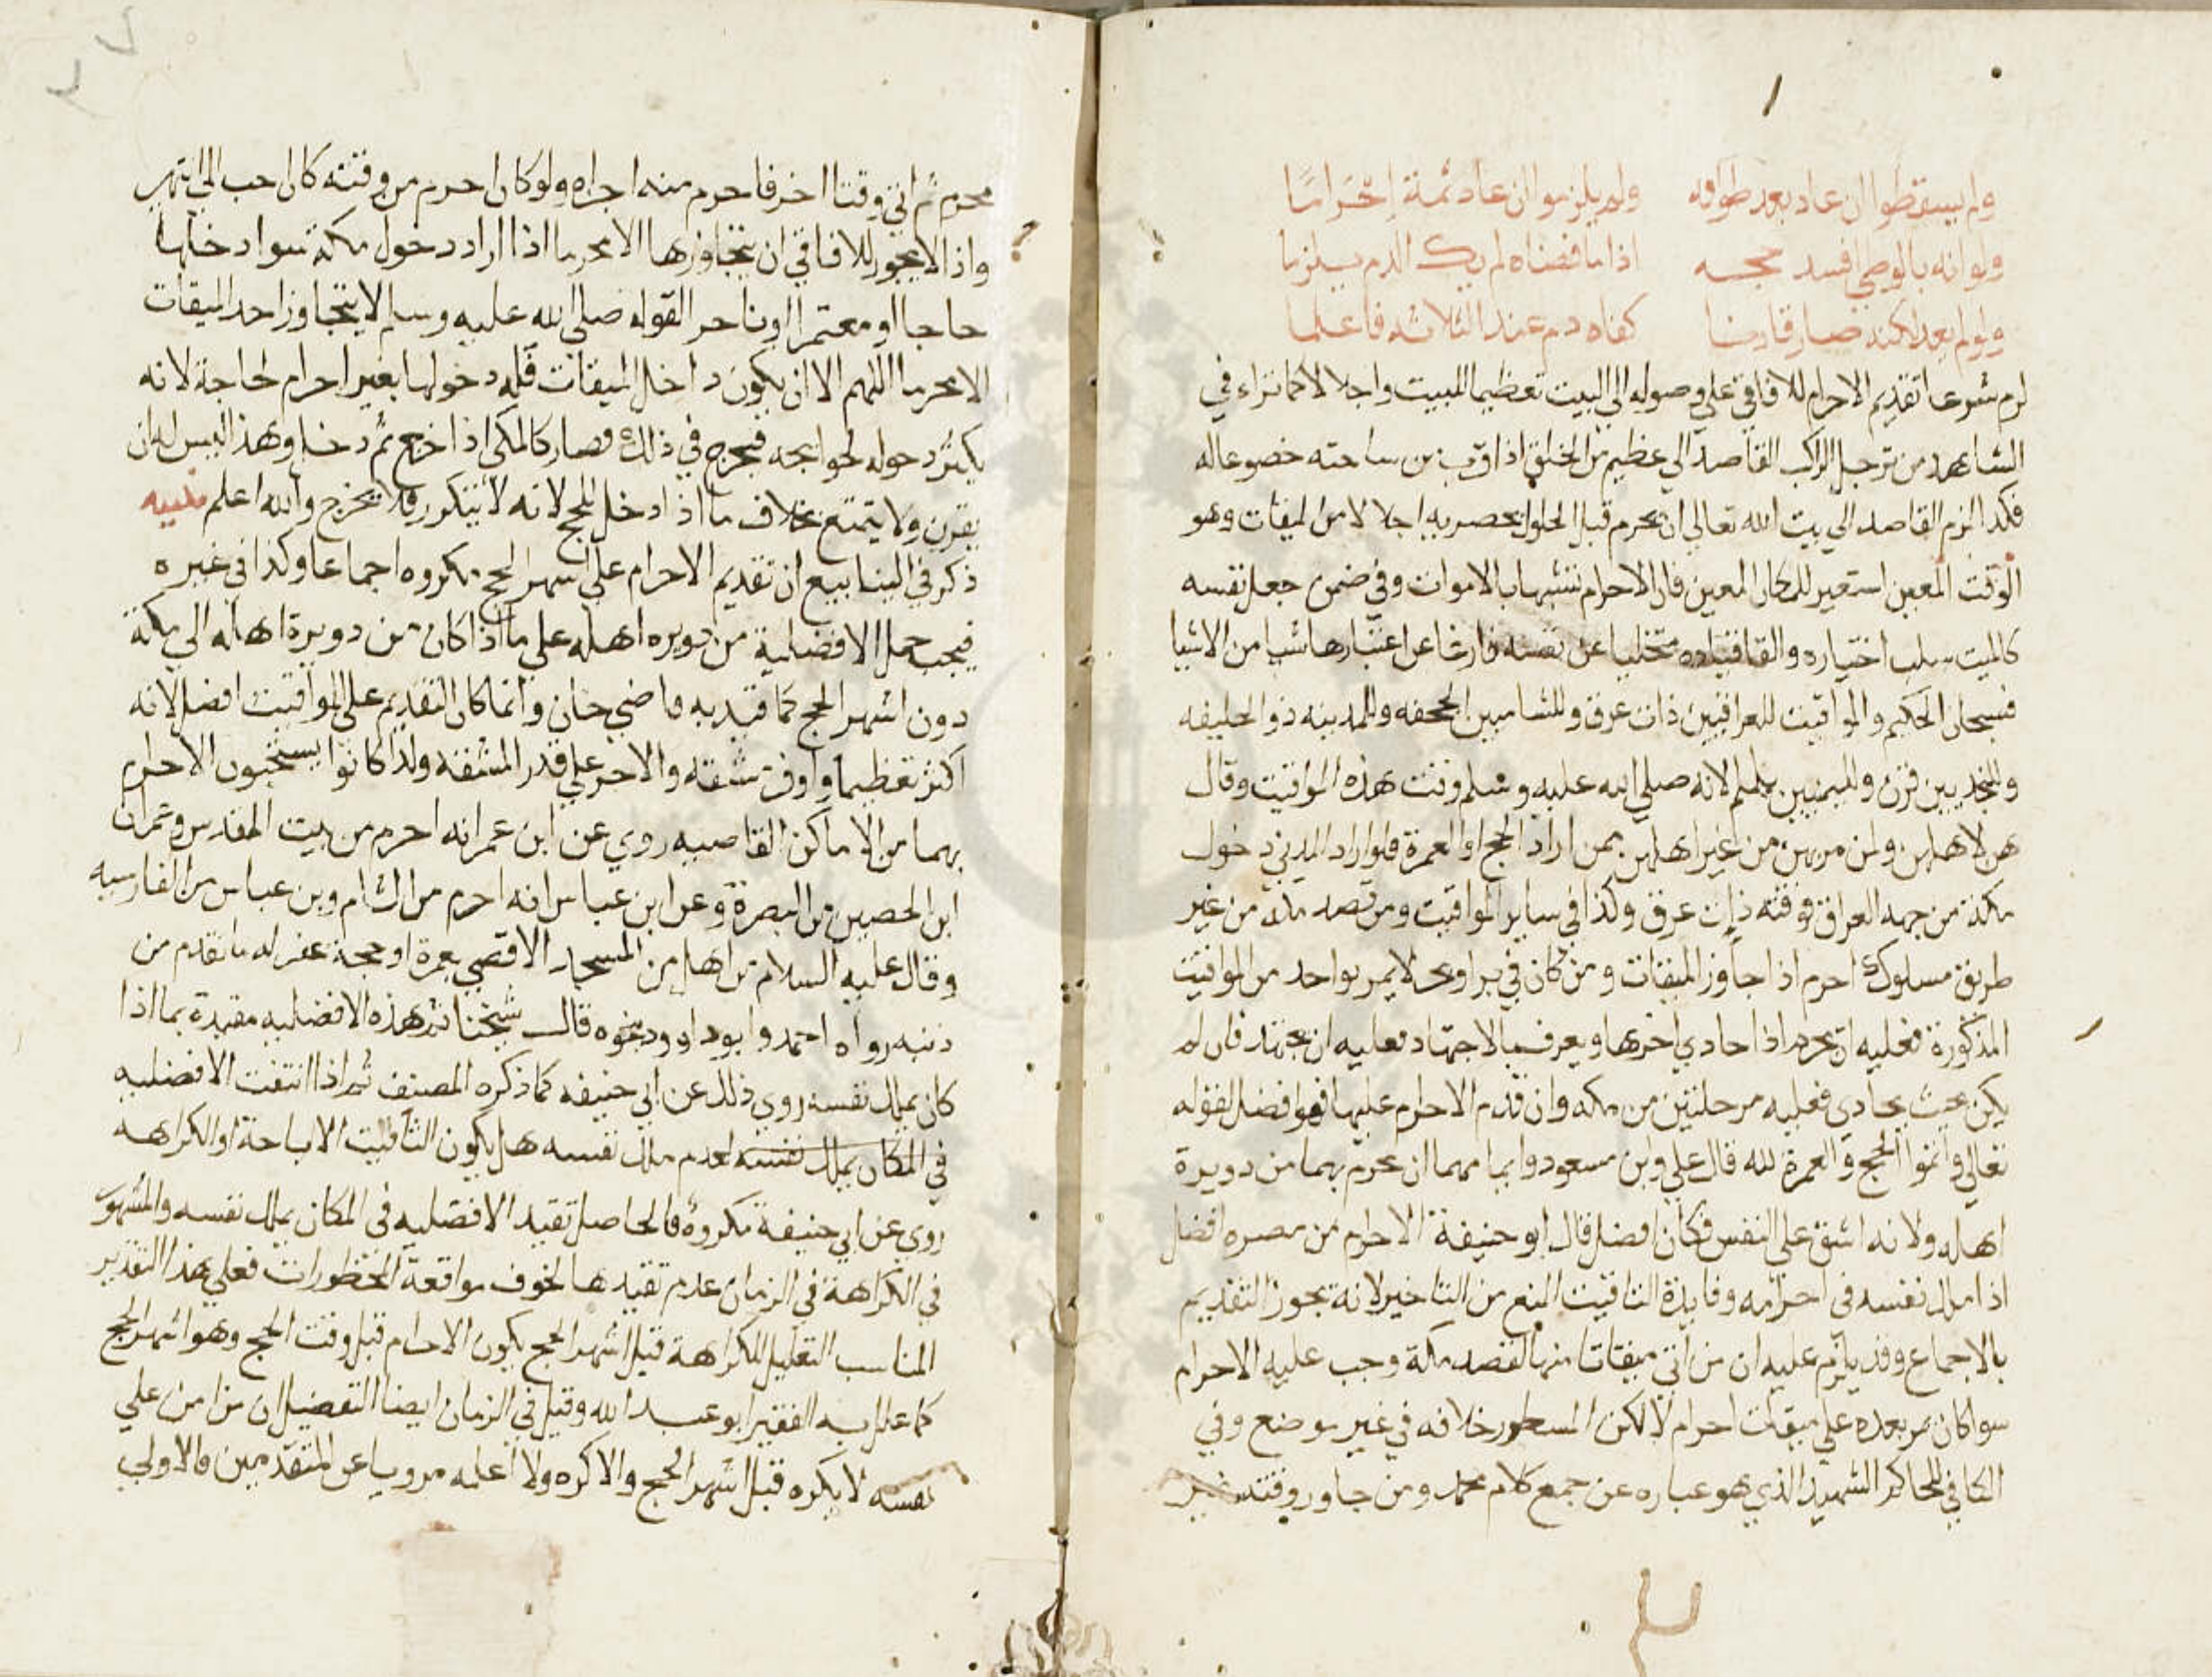 ولم يسقطوا ان عاد بعد طوافه ولم يلزموا ان عاد ثمة احراما
ولو انه بالوطي افسد حجه اذا ما قضاه لم يك الدم يلزما
ولو لم يعد لكنه صار قارنا كفاه دم عند الثلاثة فاعلما
لزم شرعا تقديم الاحرام للافاقي علي وصوله الي البيت تعظيما للبيت واجلالا كما تراه في
الشاهد من ترجل الراكب القاصد الي عظيم من الخلق اذا قرب من ساحته خضوعا له
فكذا لزم القاصد الي بيت الله تعالي ان يحرم قبل الحلول بحضرته اجلالا من الميقات وهو
الوقت المعين استعير للمكان المعين فان الاحرام تشبها بالاموات وفي ضمن جعل نفسه
كالميت سلب اختياره والقا قياده متخليا عن نفسه فارغا عن اعتبارها شيا من الاشيا
فسبحان الحكيم والمواقيت للعراقيين ذات عرق وللشاميين الجحفه وللمدينه ذو الحليفه
وللنجديين قرن ولليمنيين يلملم لانه صلي الله عليه وسلم وقت هذه المواقيت وقال
هن لاهلهن ولمن مر بهن من غير اهلهن ممن اراد الحج او العمرة فلو اراد المدني دخول
مكة من جهه العراق فوقته ذات عرق وكذا في ساير المواقيت ومن قصد مكة من غير
طريق مسلوك احرم اذا جاوز الميقات ومن كان في بر او بحر لا يمر بواحد من المواقيت
المذكورة فعليه ان يحرم اذا حادي اخرها ويعرف بالاجتهاد فعليه ان يجتهد فان لم
يكن بحيث يحادي فعليه مرحلتين من مكه وان قدم الاحرام عليها فهو افضل لقوله
تعالي واتموا الحج والعمرة لله قال علي وبن مسعود اتمامهما ان يحرم بهما من دويرة
اهله ولانه اشق علي النفس فكان افضل قال ابو حنيفة الاحرام من مصره افضل
اذا ملك نفسه في احرامه وفايدة التاقيت المنع من التاخير لانه يجوز التقديم
بالاجماع وقد يلزم عليه ان من اتي ميقاتا منها لقصد مكة وجب عليه الاحرام
سوا كان يمر بعده علي ميقات احرام لا لكن المسطور خلافه في غير موضع وفي
الكافي للحاكم الشهيد الذي هو عباره عن جمع كلام محمد ومن جاوز وقته غير
محرم ثم اتي وقتا اخر فاحرم منه اجزاه ولو كان احرم من وقته كان احب الي انتهي
واذا لا يجوز للافاقي ان يتجاوزها الا محرما اذا اراد دخول مكة سوا دخلها
حاجا او معتمرا او تاجر القوله صلي الله عليه وسلم لا يتجاوز احد الميقات
الا محرما اللهم الا ان يكون داخل الميقات فله دخولها بغير احرام لحاجة لانه
يكثر دخوله لحوايجه فيحرج في ذلك فصار كالمكي اذا خرج ثم دخل وهذا ليس له ان
يقرن ولا يتمتع بخلاف ما اذا دخل للحج لانه لا يتكرر فلا يحرج والله اعلم تنبيه
ذكر في الينابيع ان تقديم الاحرام علي اشهر الحج مكروه اجماعا وكذا في غيره
فيجب حمل الافضلية من دويره اهله علي ما اذا كان من دويرة اهله الي مكة
دون اشهر الحج كما قيد به قاضي خان وانما كان التقديم علي المواقيت افضل لانه
اكثر تعظيما واوفر مشقه والاجر علي قدر المشقه ولذا كانوا يستحبون الاحرام
بهما من الاماكن القاصيه روي عن ابن عمر انه احرم من بيت المقدس وعمران
ابن الحصين من البصرة وعن ابن عباس انه احرم من الشام وبن عباس من القادسيه
وقال عليه السلام من اهل من المسجد الاقصي بعمرة او حجة غفر له ما تقدم من
ذنبه رواه احمد وابوداوود بنحوه قال شيخنا ثم هذه الافضليه مقيدة بما اذا
كان يملك نفسه روي ذلك عن ابي حنيفه كما ذكره المصنف ثم اذا انتفت الافضليه
في المكان يملك نفسه لعدم ملك نفسه هل يكون الثابت الاباحة او الكراهه
روي عن ابي حنيفة مكروه فالحاصل تقيد الافضليه في المكان يملك نفسه والمشهور
في الكراهة في الزمان عدم تقيدها لخوف مواقعة المحظورات فعلي هذا التقدير
المناسب التعليل للكراهة قبل اشهر الحج بكون الاحرام قبل وقت الحج وهو اشهر الحج
كما علل به الفقير ابو عبد الله وقيل في الزمان ايضا التفصيل ان من امن علي
نفسه لا يكره قبل اشهر الحج والا كره ولا اعلمه مرويا عن المتقدمين فالاولي